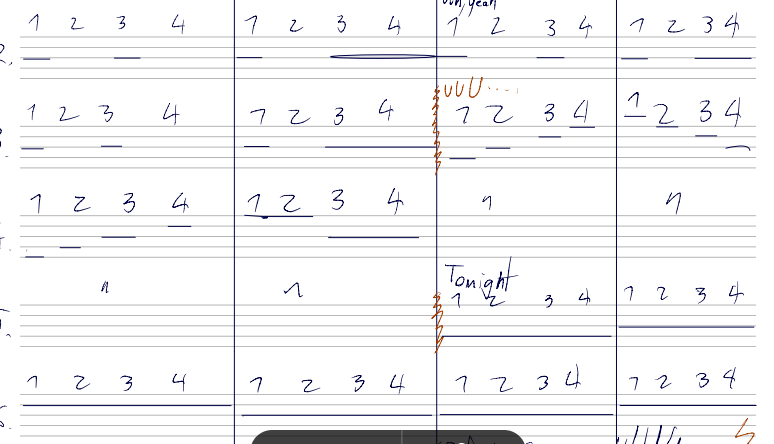 uh, yeah
1 2 3 4 1 2 3 4 1 2 3 4 1 2 3 4
2.
UUU.....
1 2 3 4 1 2 3 4 1 2 3 4 1 2 3 4
1 2 3 4 1 2 3 4 n n
n n
Tonight
1 2 3 4 1 2 3 4
1 2 3 4 1 2 3 4 1 2 3 4 1 2 3 4